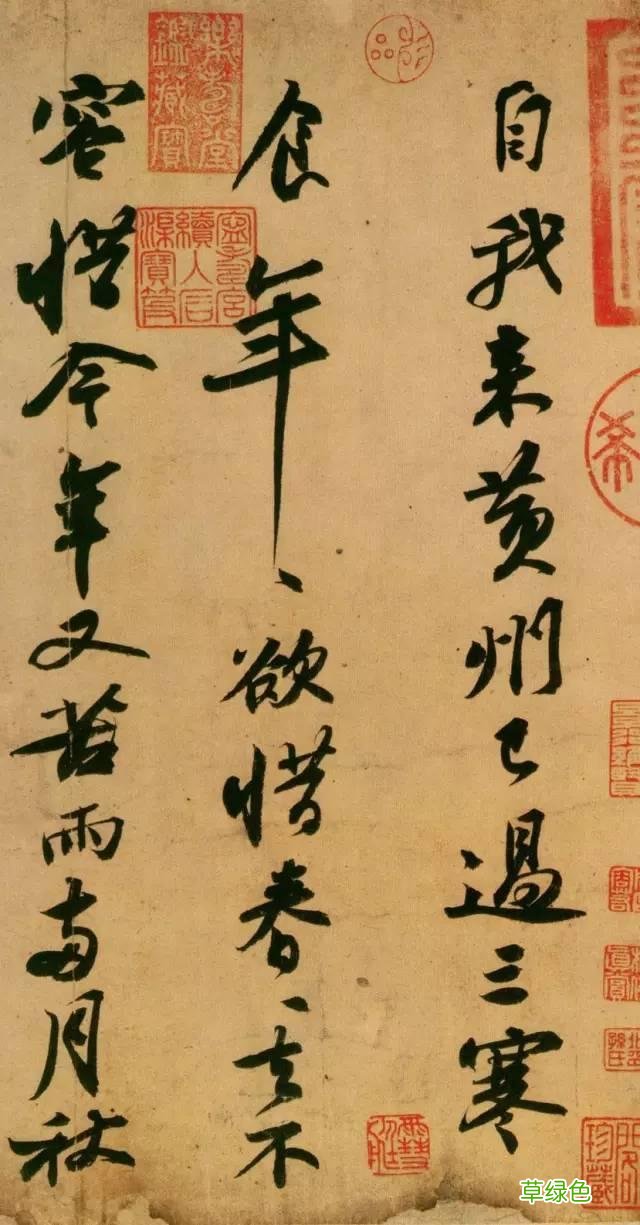 自我来黄州已過三寒
食年〻欲惜春〻去不
容惜今年又苦雨两月秋
草绿色